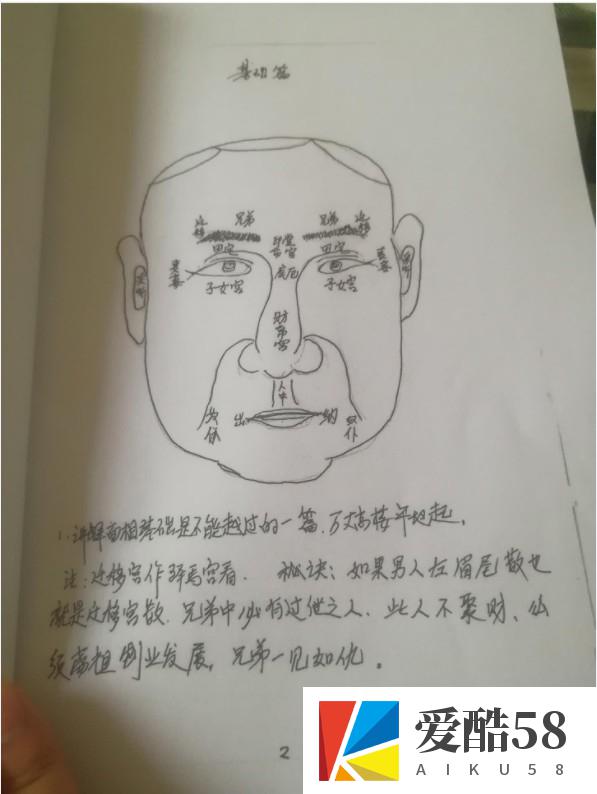 基础篇
迁移 兄弟 兄弟 迁移
印堂
命宫
田宅 田宅
疾厄
妻妾 妻妾
子女宫 子女宫
财帛宫
人中
出 纳
奴仆 奴仆
1.详解面相基础是不能越过的一篇.万丈高楼平地起。
注:迁移宫作驿马宫看. 秘诀:如果男人左眉尾散也
就是迁移宫散.兄弟中必有过世之人.此人不聚财、必
须离祖创业发展,兄弟一见如仇。
2
爱酷58
AIKU58